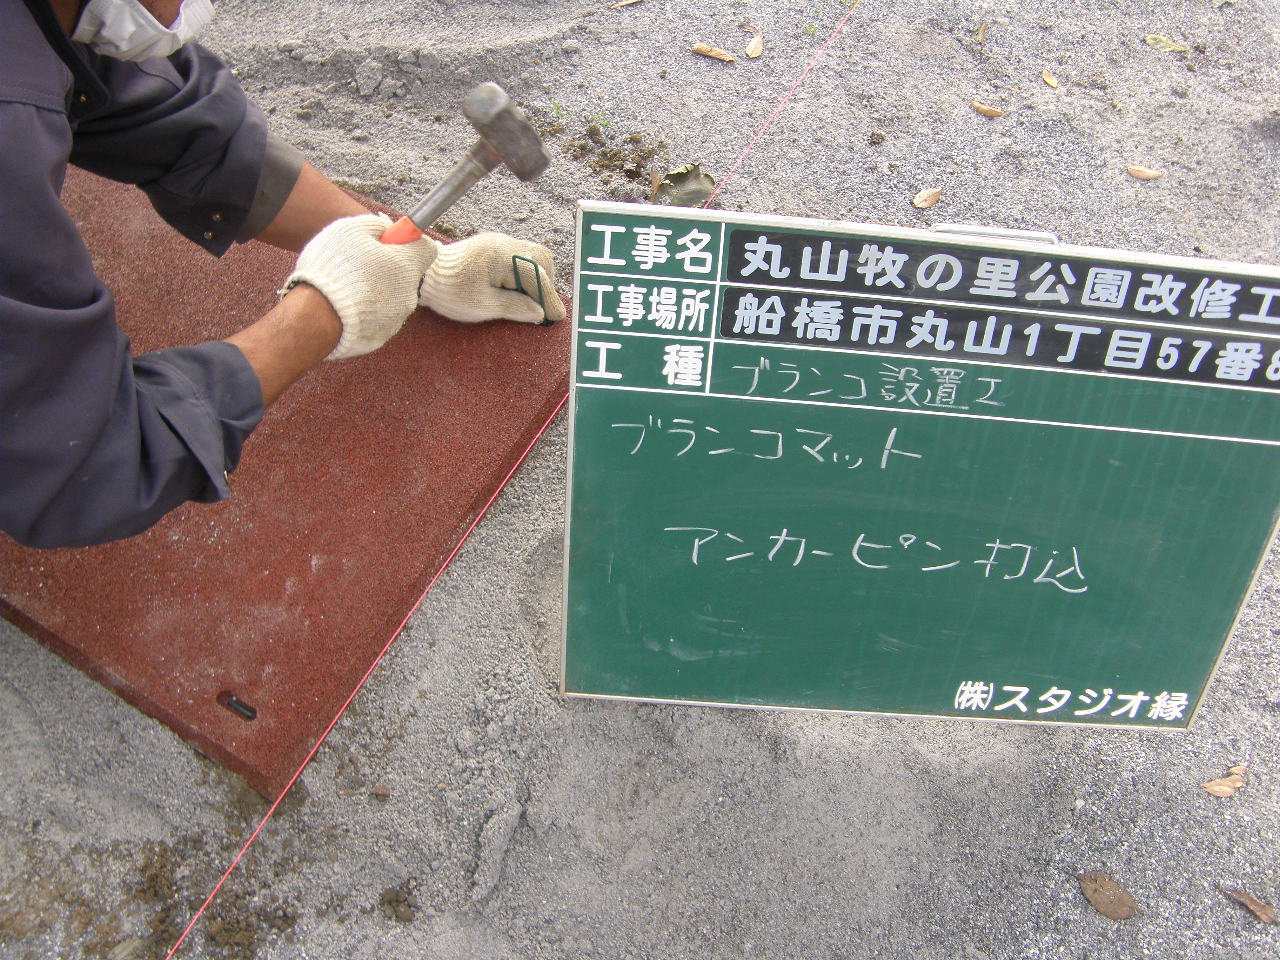 工事名 丸山牧の里公園改修工
工事場所 船橋市丸山1丁目57番8
工種 ブランコ設置工
ブランコマット
アンカーピン打込
㈱スタジオ縁